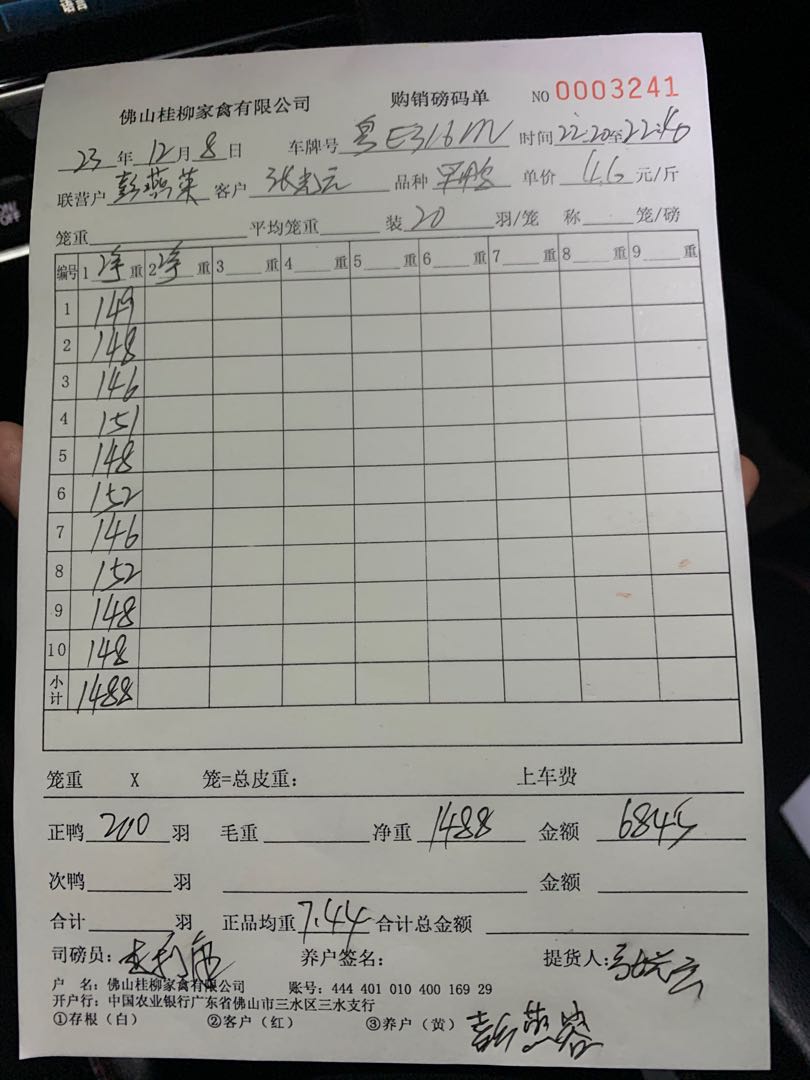 佛山桂柳家禽有限公司 购销磅码单 NO 0003241
23 年 12 月 8 日 车牌号 粤E316M 时间 22:20至22:40
联营户 彭燕 客户 张 品种 单价 4.6 元/斤
笼重 平均笼重 装 20 羽/笼 称 笼/磅
编号 1 净 重 2 净 重 3 重 4 重 5 重 6 重 7 重 8 重 9 重
1 149
2 148
3 146
4 151
5 148
6 152
7 146
8 152
9 148
10 148
小计 1488
笼重 X 笼=总皮重: 上车费
正鸭 200 羽 毛重 净重 1488 金额 6845
次鸭 羽 金额
合计 羽 正品均重 7.44 合计总金额
司磅员: 养户签名: 提货人:
户 名: 佛山桂柳家禽有限公司 账号: 444 401 010 400 169 29
开户行: 中国农业银行广东省佛山市三水区三水支行
①存根（白） ②客户（红） ③养户（黄） 彭燕